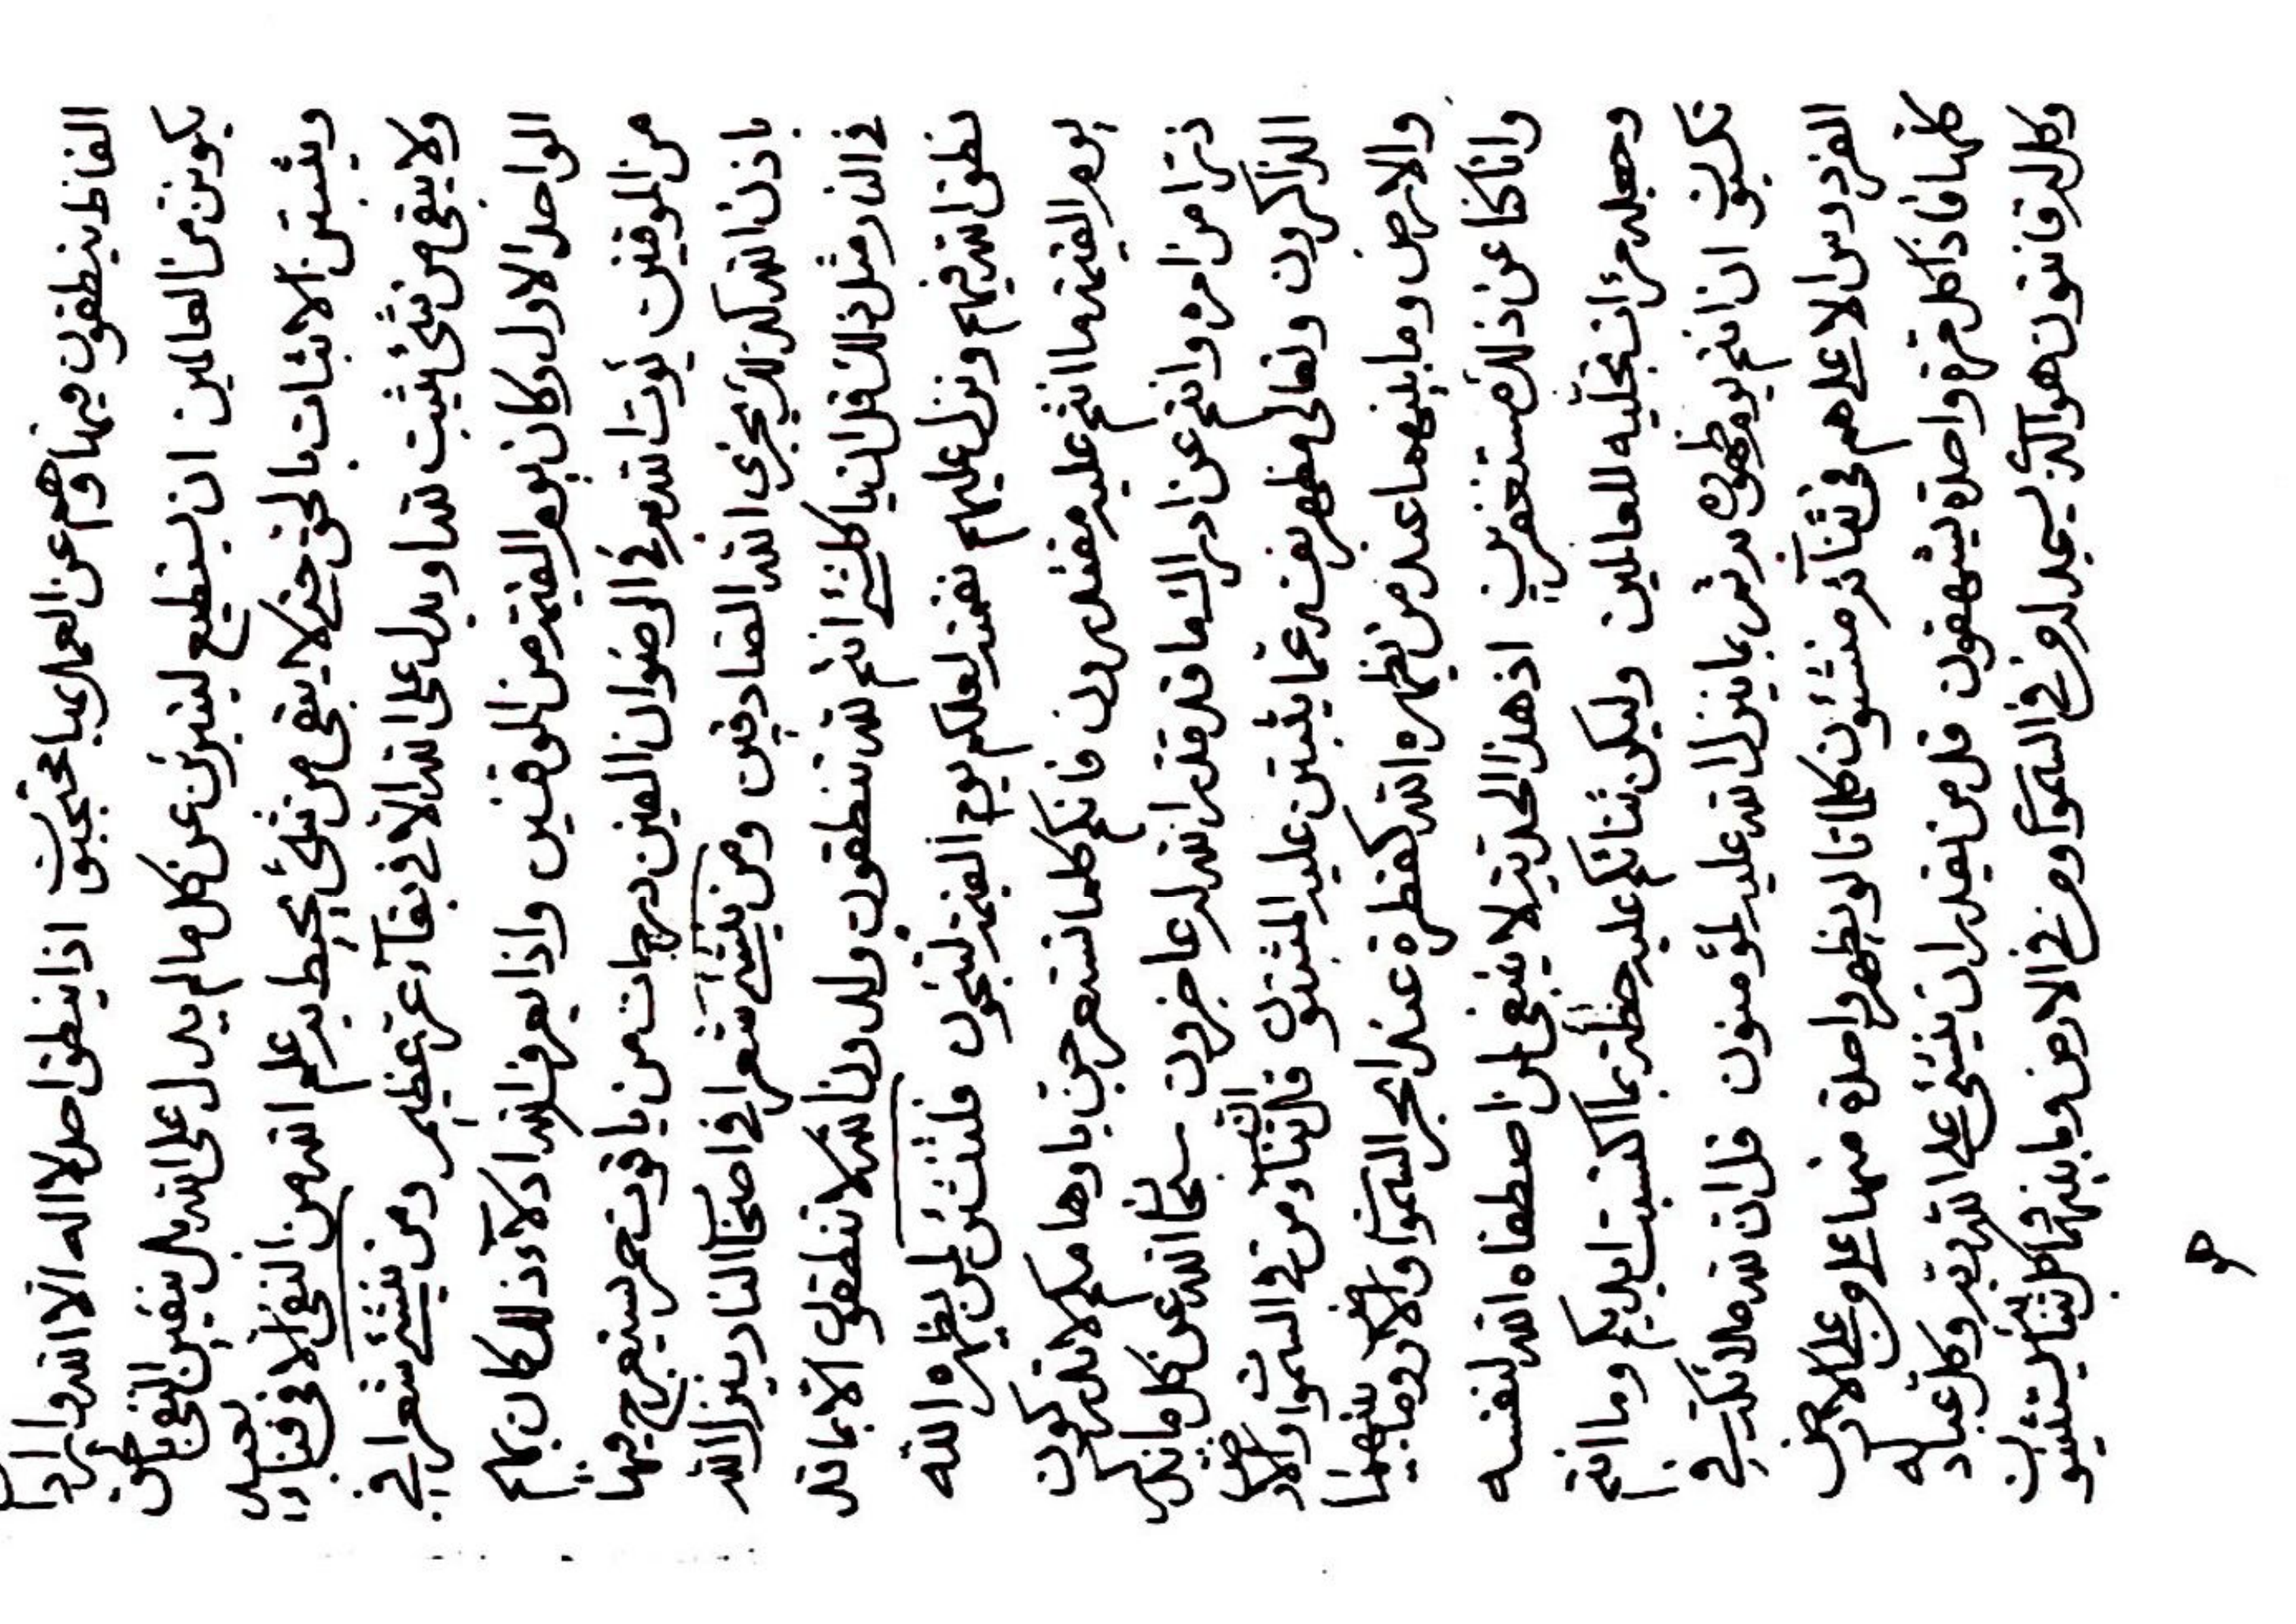 الفاظ ينطقون فيها وهم عن العمل بها محتجبون اذا ينطق احد لا اله الا الله
يكونن من العالمين ان يستطيع ليتبرئن عن كل ما لم يدل على الله بل يفنين النفى
ويثبتن الاثبات بالحق حتى لا يبقى من شئ يحيط به علم الله من النفى الا فى فناء
ولا يبقى من شئ يثبت لله او يدل على الله الا فى بقاء عز عظيم ومن ينشئ شعرا فى
الواحد الاول وكان يوم القيمة من الموقنين واذا يعرف الله ادلاء ذلك كان بهم
من الموقنين يؤت الله فى الرضوان الفين درجات من ياقوت حمر ليتعرج فيها
باذن الله كذلك يجزى الله الصادقين ومن ينشئ شعرا فى اصحاب النار ينزل الله
فى النار مثل ذلك قل انما كلشئ انتم لله تنطقون ولدون الله لا تنطقون الا بما قد
نطق الله فيهم ونزل عليهم نقمته لعلكم يوم القيمة لتنجون فلتثنين لمن يظهره الله
يوم القيمة ما انتم عليه مقتدرون فانكم كلما تستعرجن بادوها مكم لا تدركون
ذرا من امره وانتم عن ادراك ما قد قدر الله له عاجزون سبحان الله عن كل ما يذكر
الذاكرون وتعالى مظهر نفسه عما يثبتن عليه المثبتون قل ثناء من فى السموات والارض
والارض وما بينهما عند من يظهره الله كقطرة عند ابحر السموات والارض وما بينهما
وانا كنا عن ذلك مستغفرين اذ هذا الحد يه لا ينبغى لمن اصطفاه الله لنفسه
وجعله مرآت تجليه للعالمين وليكن ثنائكم عليه حظه بما اكتسبت ايديكم وما انتم
تكسبون ان انتم يوم ظهوره به ثم بما ينزل الله عليه لمؤمنون قل ان لله ملائكة فى
الفردوس الاعلى هم فى ثناء الله منشئون كلمات لو يظهر واحدة منها على من على الارض
كلها فاذا كل مرة واحدة يشهقون قل من يقدر ان يثنى على الله ربه وكل عباد له
وكل له قانتون هو الذى يسجد له من فى السموات ومن فى الارض وما بينهما كل بثناء يثنيون
هو